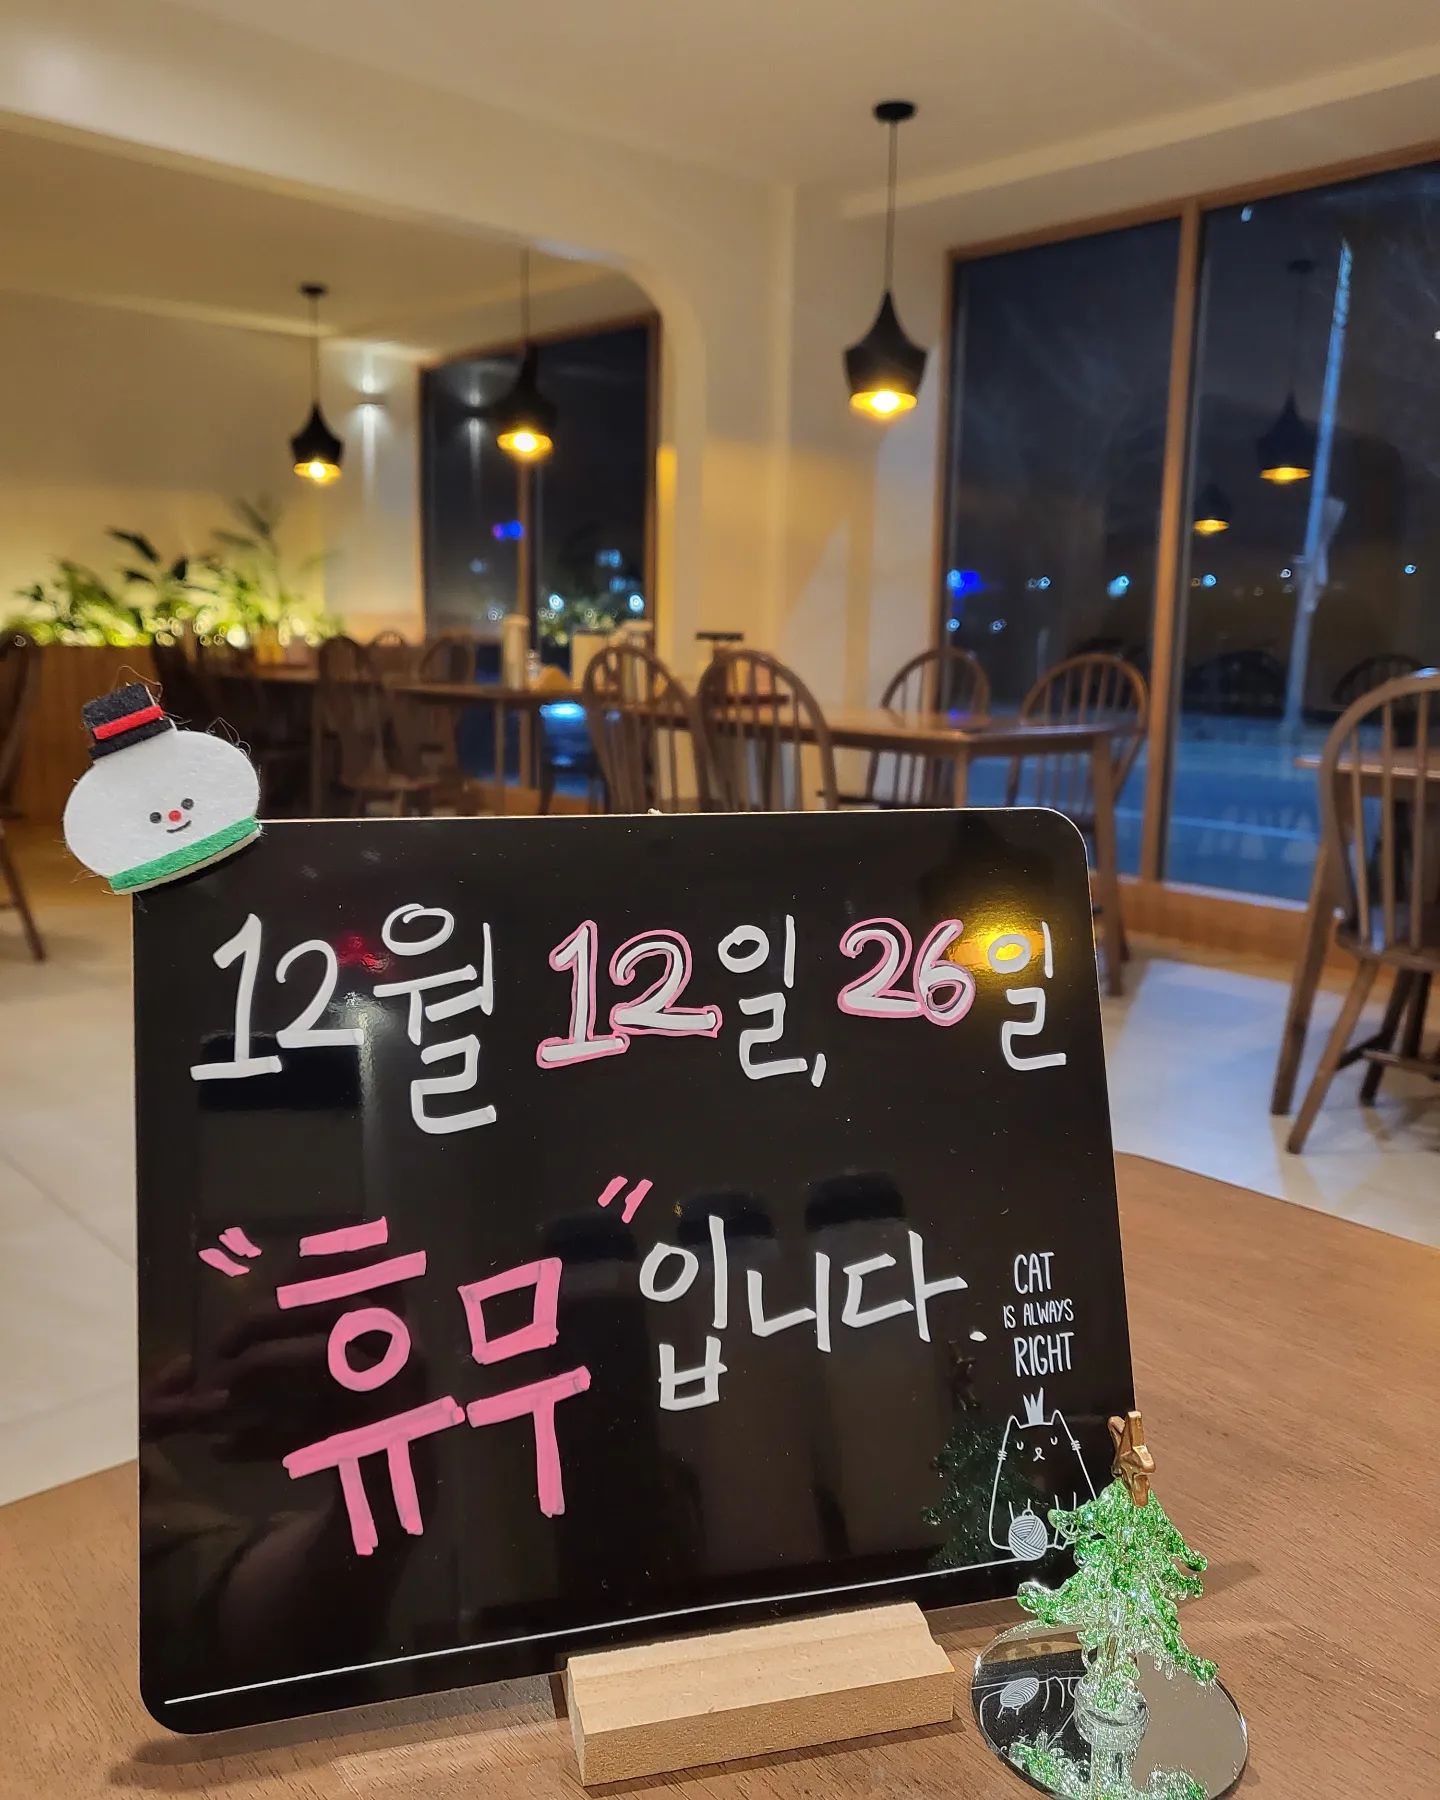 12월 12일, 26일
"휴무"입니다.
CAT
IS ALWAYS
RIGHT